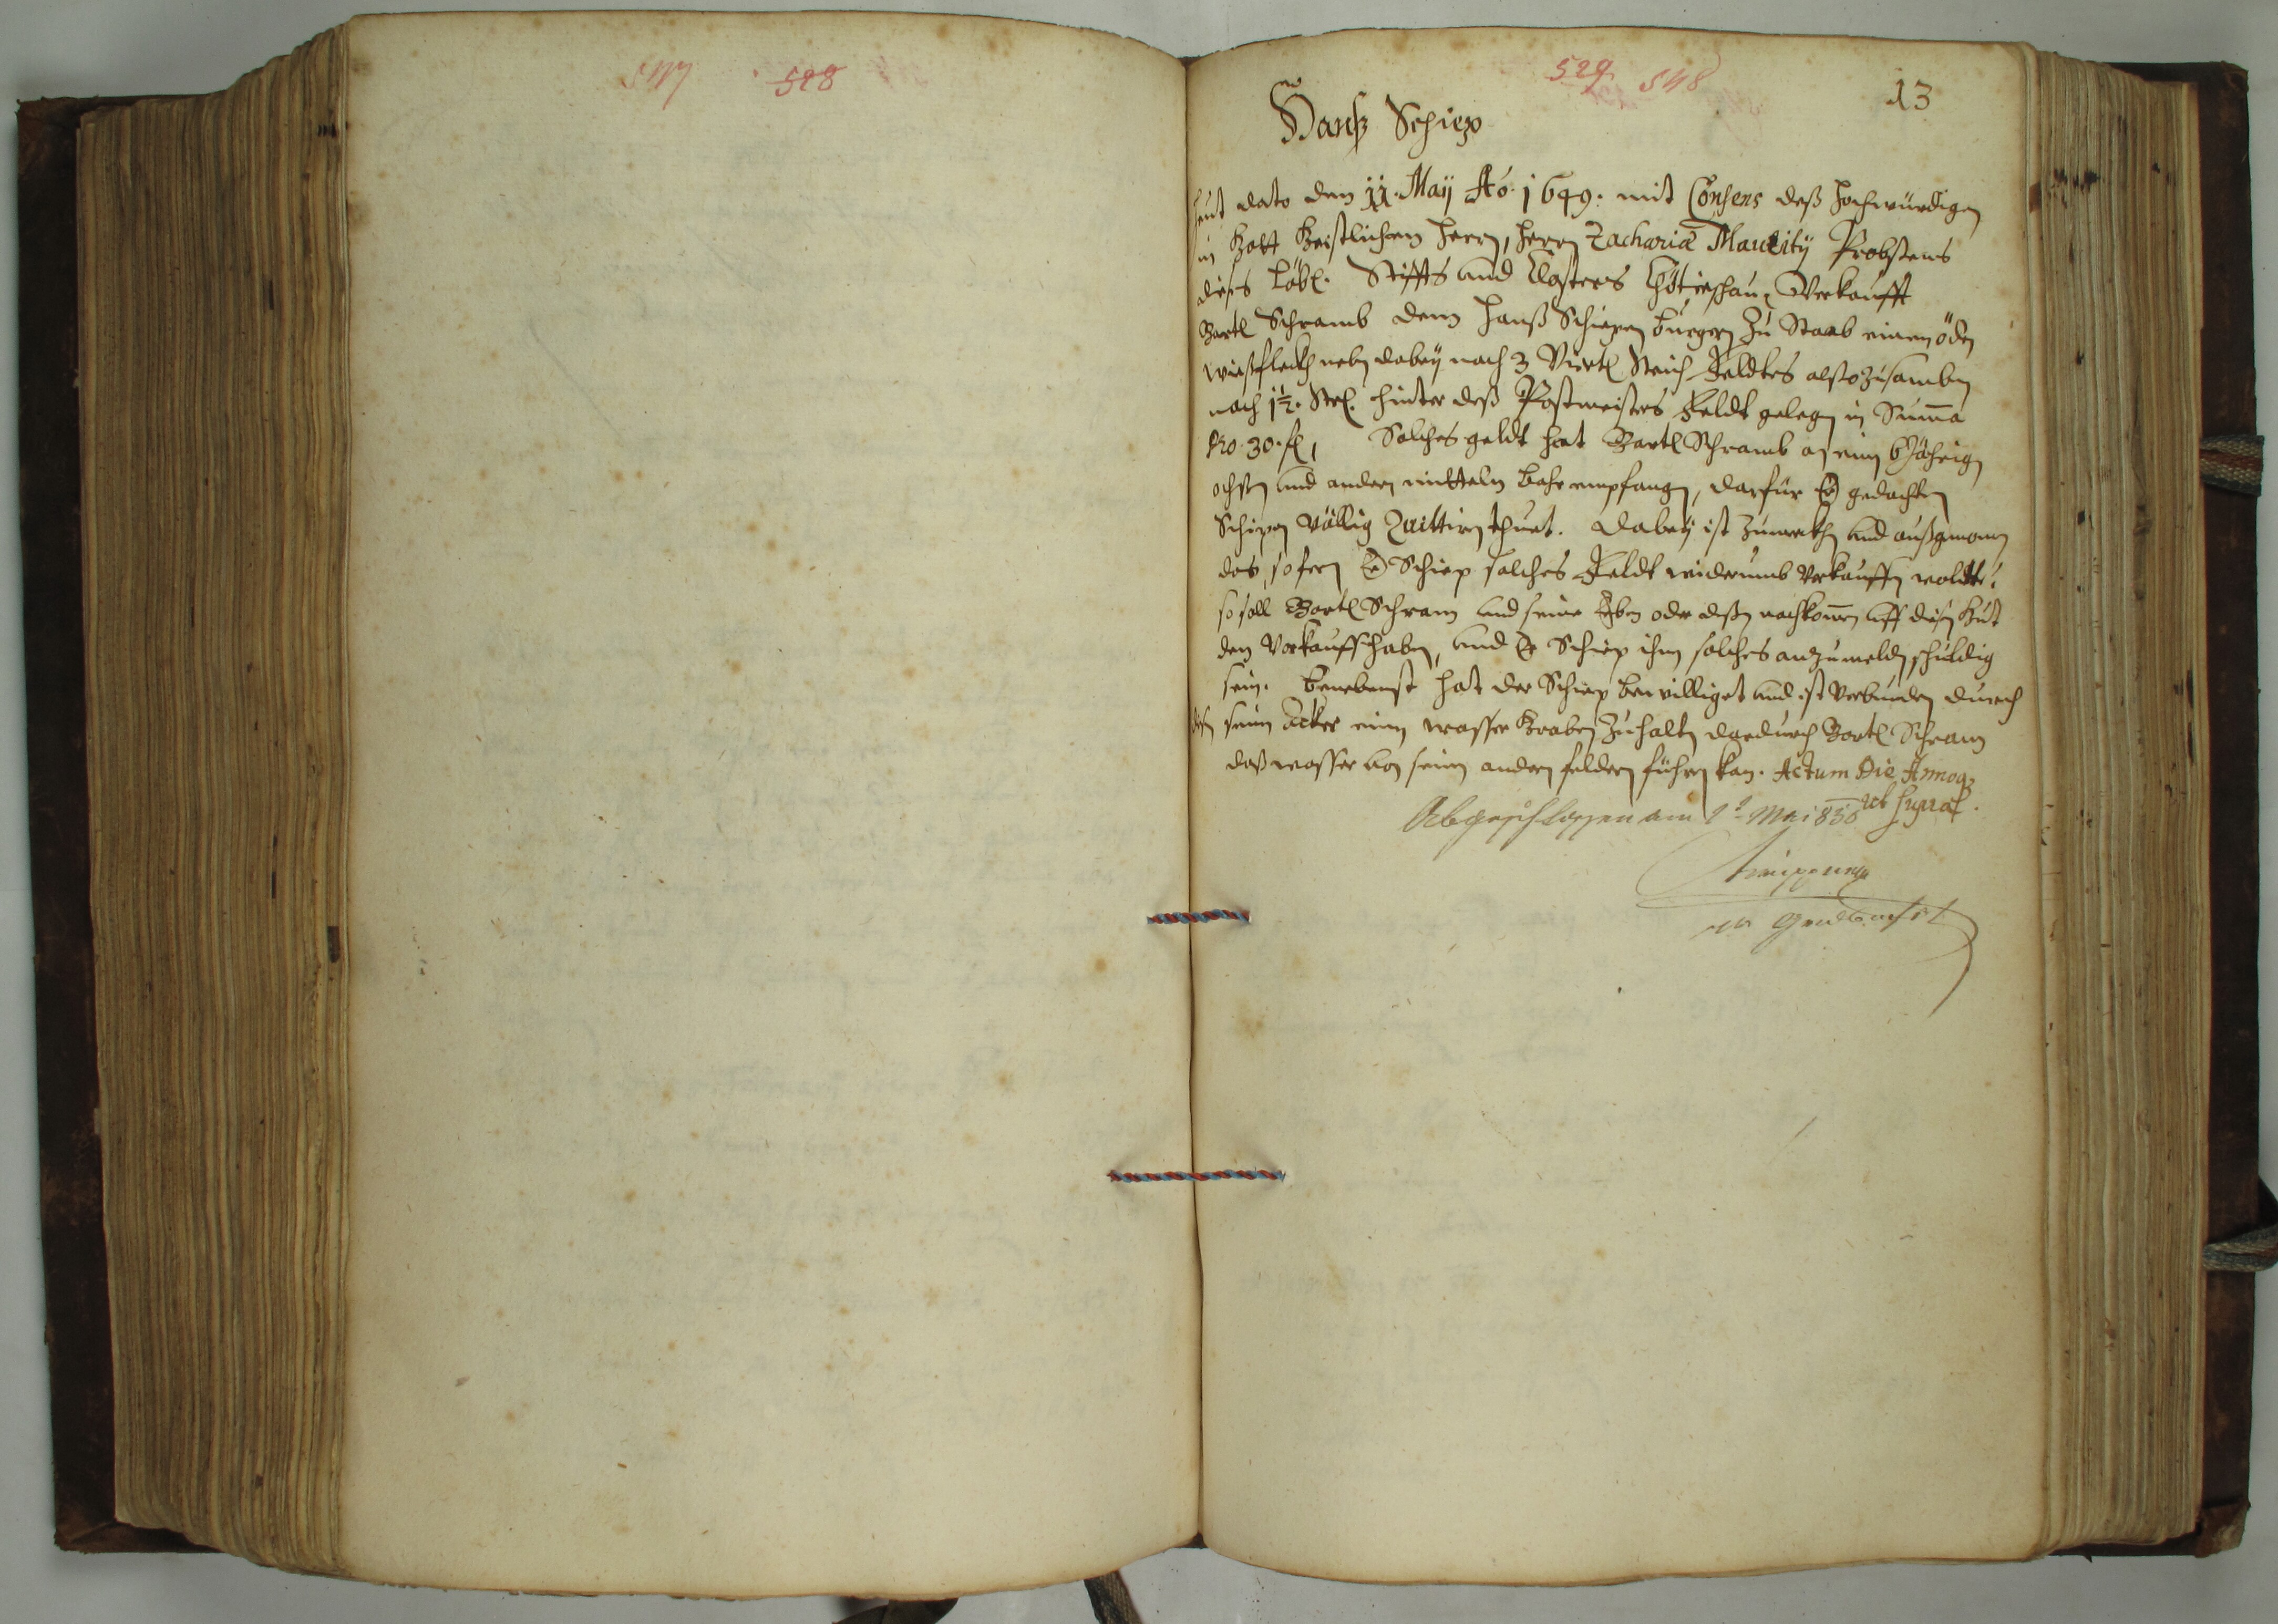 547 528
529 548
13
Hanß Schiep
Heut dato den 11. May Aõ. 1649. mit Consens deß hochwürdigen
in Gott Geistlichen Herrn, Herrn Zachariæ Maurity Probstens
dieses Löbl. Stiffts und Closters Chotieschau, Verkaufft
Bartl Schramb dem Hanß Schiepen burgern zu Staab einen öden
wießfleckh neben dabey nach 3 Viertl Strich Feldtes also zusamben
nach 1½. Str. hinter deß Postmeisters Feldt gelegen in Summa
Pro. 30. fl, Solches geldt hat Bartl Schramb an einen 6 Jährigen
ochsen und andern mitteln bahr empfangen, darfür Er gedachten
Schiepen völlig Quittiren thuet. Dabey ist zumerckhen und außgenomen
das, sofern Er Schiep solches Feldt widerumb verkauffen woldte,
so soll Bartl Schram und seine Erben oder dessen nachkomen uff diesen Gut
den Vorkauff haben, und Er Schiep ihm solches anzumelden schuldig
sein. Benebenst hat der Schiep bewilliget und ist verbunden durch
diesen seinen Acker einen wasser Graben zuhalten dardurch Bartl Schram
daß wasser von seinen andern feldern führen kan. Actum Die Annoq3
ut supra.
Abgeschlossen am 1t Mai 850